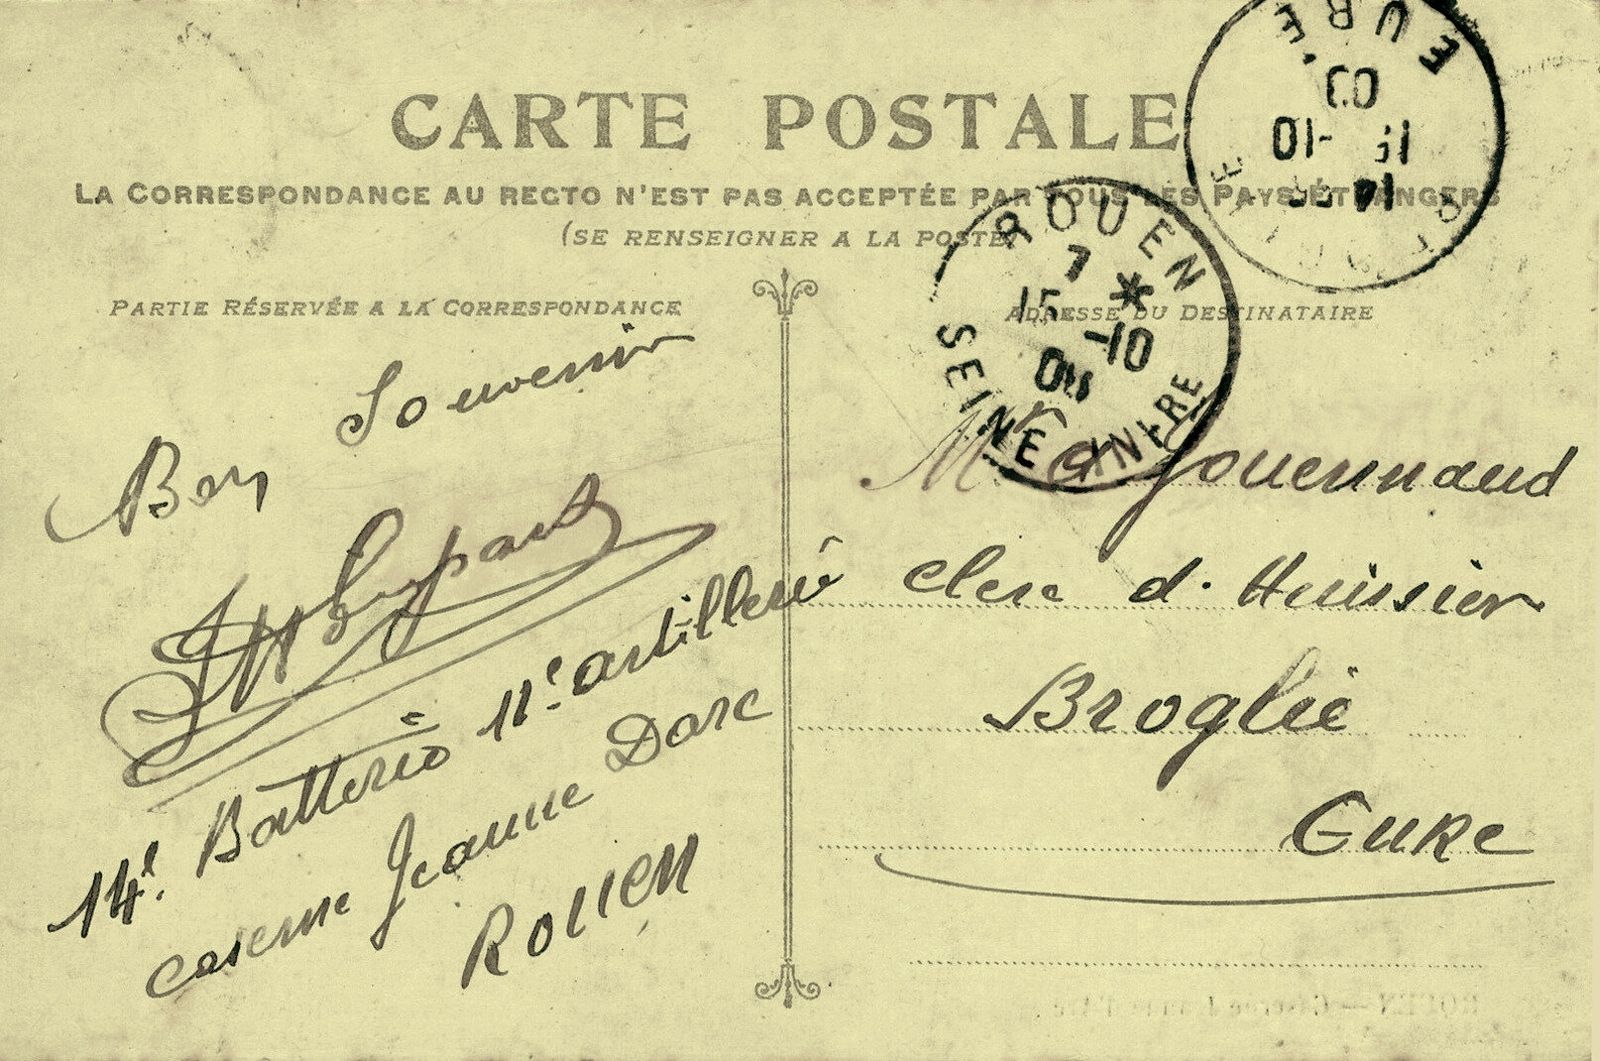 CARTE POSTALE
LA CORRESPONDANCE AU RECTO N'EST PAS ACCEPTÉE PAR TOUS LES PAYS ÉTRANGERS
(SE RENSEIGNER A LA POSTE)
PARTIE RÉSERVÉE A LA CORRESPONDANCE
ADRESSE DU DESTINATAIRE
Bon Souvenir
14e. Batterie 11e artillerie
caserne Jeanne Darc
ROUEN
Mr
clerc d. Huissier
Broglie
Eure
ROUEN
7 *
15 -10
08
SEINE INFRE
EURE
-10